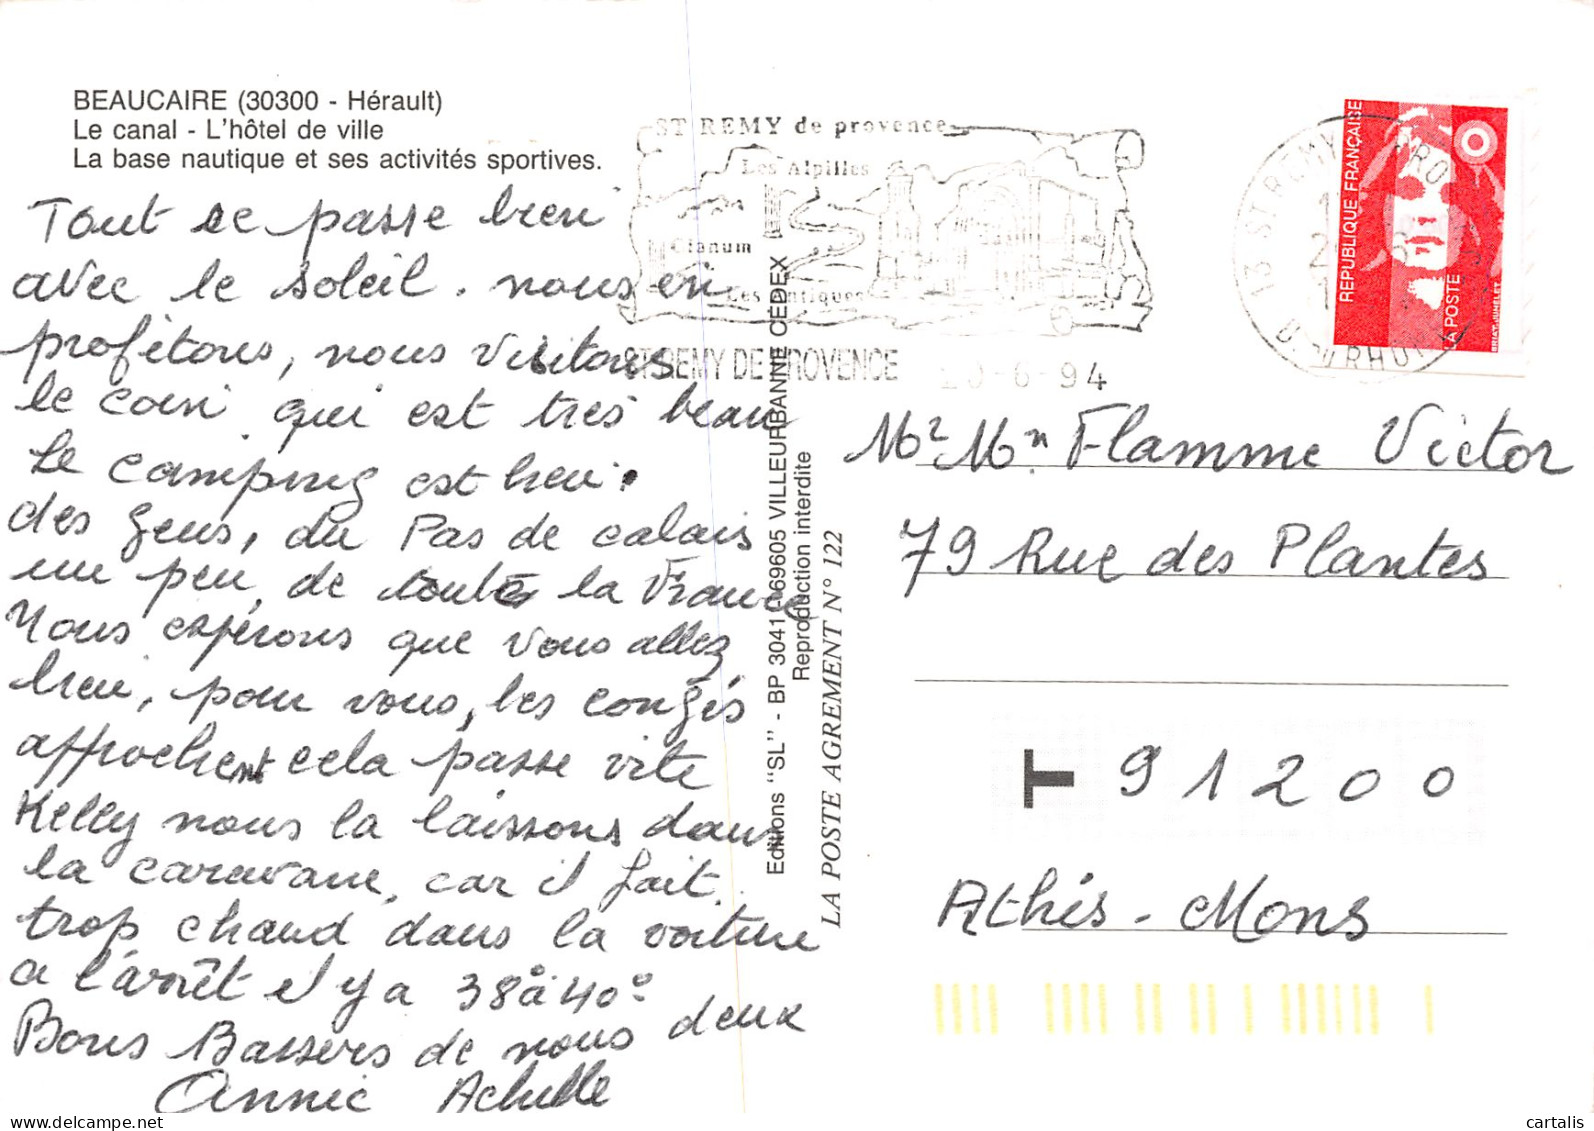 BEAUCAIRE (30300 - Hérault)
Le canal - L'hôtel de ville
La base nautique et ses activités sportives.
Tout se passe bien
avec le soleil. nous en
profitons, nous visitons
le coin qui est très beau
le camping est bien.
des gens, du Pas de calais
un peu, de toute la France
Nous espérons que vous allez
bien, pour vous, les congés
approchent cela passe vite
Kelly nous la laissons dans
la caravane, car il fait
trop chaud dans la voiture
a l'arrêt il y a 38° à 40°
Bons Bassers de nous deux
Annie Achille
ST REMY de provence
Les Alpilles
Glanum
Les Antiques
ST REMY DE PROVENCE
20-6-94
13 ST REMY
B. DU RHONE
REPUBLIQUE FRANÇAISE
LA POSTE
BRIAT-JUMELET
Editions "SL" - BP 3041 - 69605 VILLEURBANNE CEDEX
Reproduction interdite
LA POSTE AGREMENT N° 122
Mr Mn Flamme Victor
79 Rue des Plantes
T 91200
Athis-Mons
cartalis